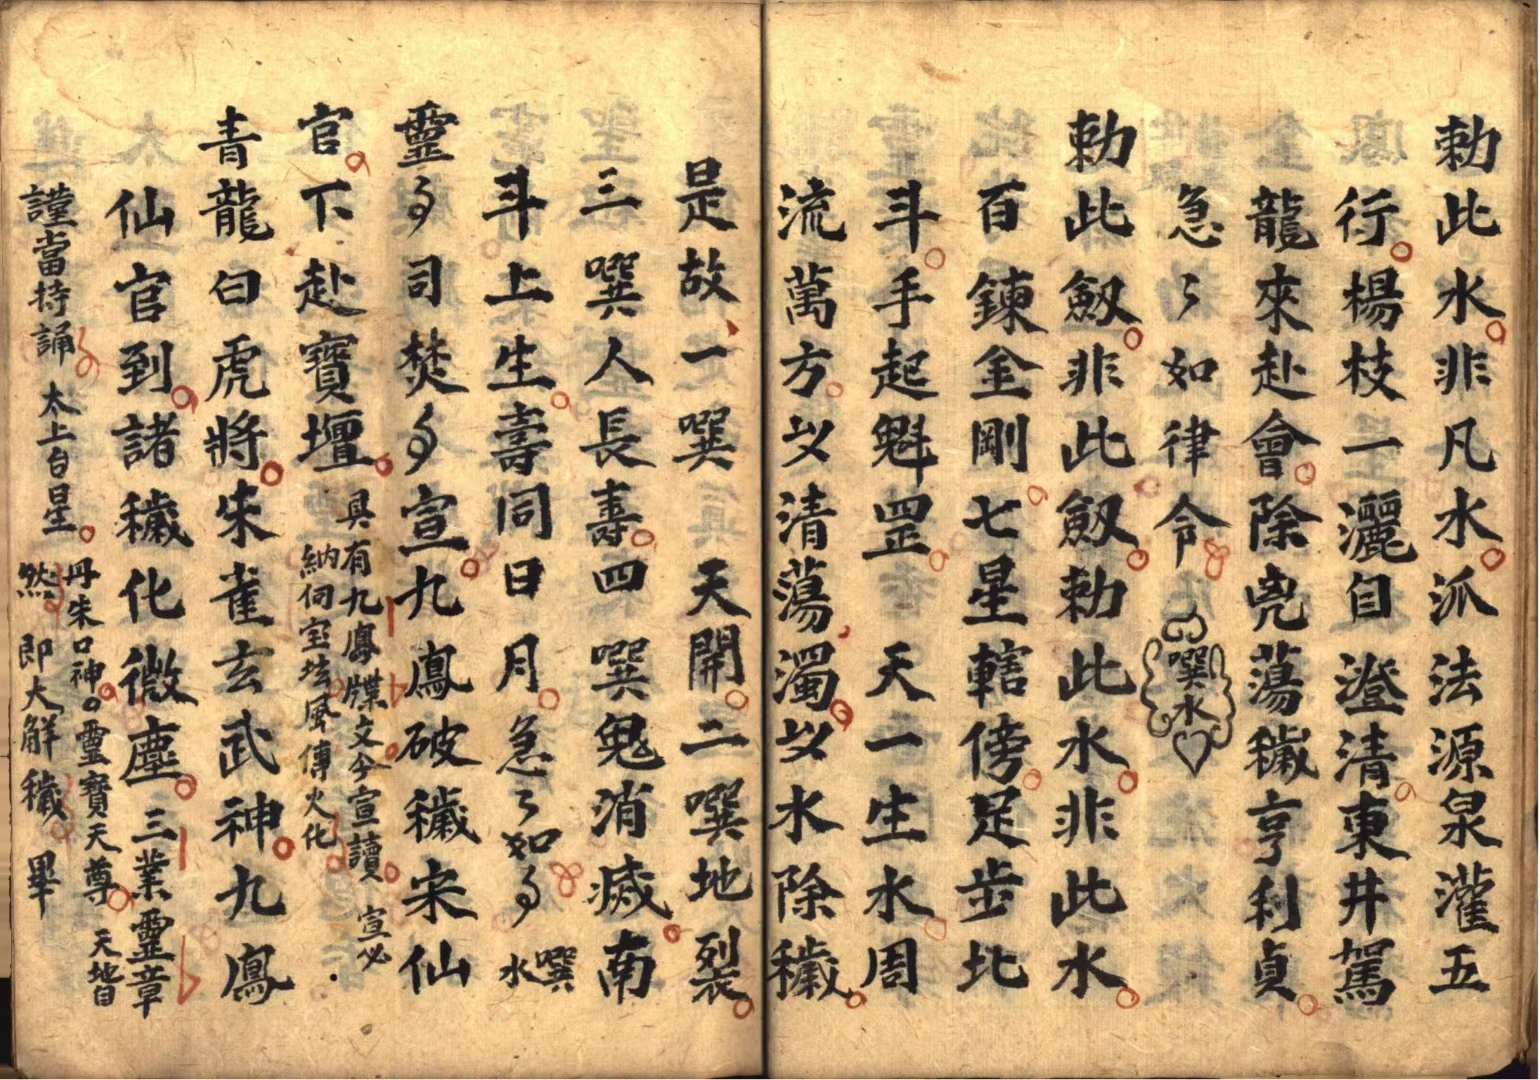 勅此水非凡水派法源泉灌五
行楊枝一灑自澄清東井駕
龍來赴會除兇蕩穢亨利貞
急〻如律令 噀水
勅此劔非此劔勅此水非此水
百鍊金剛七星轄傍足步北
斗手起魁罡 天一生水周
流萬方以清蕩濁以水除穢
是故一噀 天開二噀地 裂
三噀人長壽四噀鬼消滅南
斗上生壽同日月急〻如〻噀水
靈〻司焚〻宣九鳳破穢宋仙
官下赴寶壇 具有九鳳牒文今宣讀 宣必
納伺宝坛風傳火化
青龍白虎將朱雀玄武神九鳳
仙官到諸穢化微塵 三業靈章
謹當持誦 太上台星 丹朱口神 靈寶天尊 天地自
然 即大解穢 畢